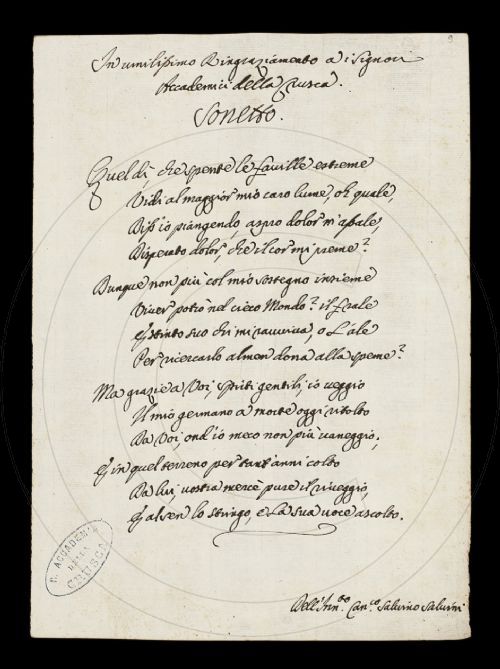 9
In umilissimo Ringraziamento a i Signori
Accademici della Crusca.
Sonetto.
Quel dì, che spente le faville estreme
Vidi al maggior mio caro lume, oh quale,
Diss'io piangendo, aspro dolor m'assale,
Disperato dolor, che il cor mi preme?
Dunque non più col mio sostegno insieme
Viver potrò nel cieco Mondo? il frale
Estinto suo chi mi ravviva, o l'ale
Per ricercarlo almen dona alla speme?
Ma grazie a Voi, spirti gentili, io veggio
Il mio germano a morte oggi ritolto
Da Voi, ond'io meco non più vaneggio;
E in quel terreno per tant'anni colto
Da lui, vostra mercè pure il riveggio,
E al sen lo stringo, e la sua voce ascolto.
R. ACCADEMIA
DELLA
CRUSCA
Dell'Inn.to Can.co Salvino Salvini